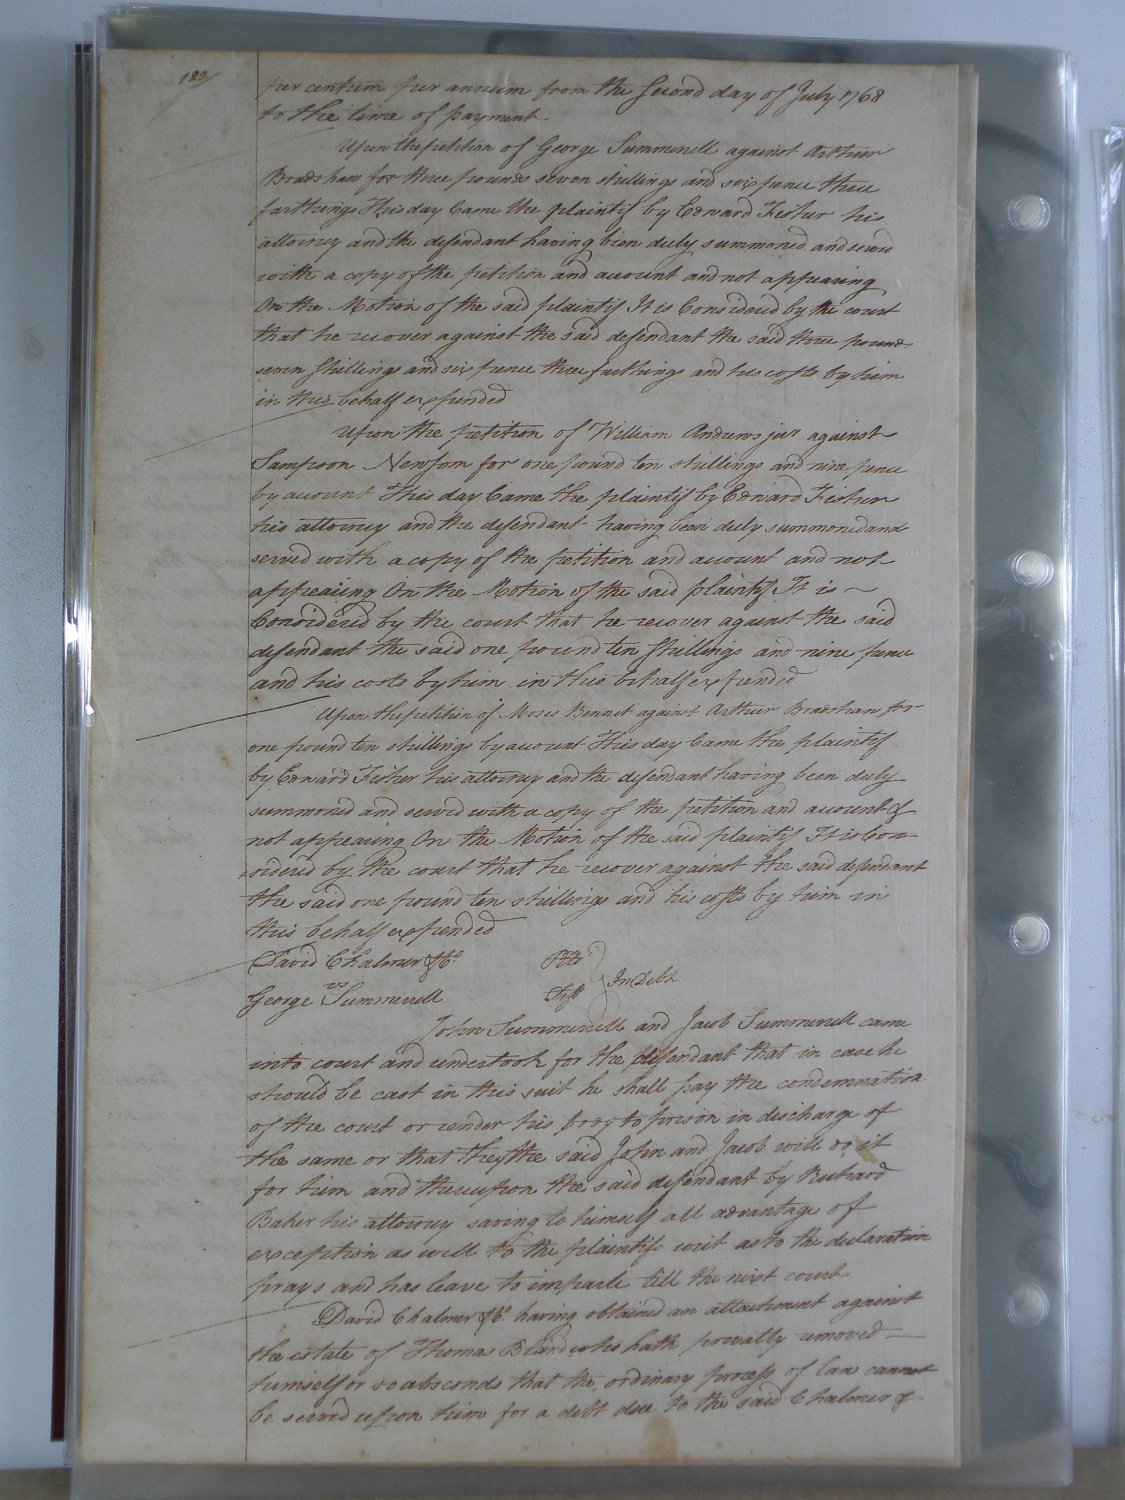 120/
per centum per annum from the second day of July 1768
to the time of payment
Upon the petition of George Summerell against Arthur
Bradshaw for three pounds seven shillings and six pence three
farthings This day Came the plaintif by Edward Fisher his
attorney and the defendant having bien duly summoned and served
with a copy of the petition and account and not appearing
On the Motion of the said plaintif It is Considered by the court
that he recover against the said defendant the said three pounds
seven shillings and six pence three farthings and his costs by him
in this behalf expended
Upon the petition of William Andrews junr against
Sampson Newsom for one pound ten shillings and nine pence
by account This day Came the plaintif by Edward Fisher
his attorney and the defendant having been duly summoned and
served with a copy of the petition and account and not
appearing On the Motion of the said plaintif It is ~
Considered by the court that he recover against the said
defendant the said one pound ten shillings and nine pence
and his costs by him in this behalf expended
Upon the petition of Moses Bennet against Arthur Bradshaw for
one pound ten shillings by account This day Came the plaintif
by Edward Fisher his attorney and the defendant having been duly
summoned and served with a copy of the petition and account &
not appearing On the Motion of the said plaintif It is Con-
sidered by the court that he recover against the said defendant
the said one pound ten shillings and his costs by him in
this behalf expended
David Chalmer & Co. Plts
vs } In Debt
George Summerell Deft
John Summerell and Jacob Summerell came
into court and undertook for the defendant that in case he
should be cast in this suit he shall pay the condemnation
of the court or render his body to prison in discharge of
the same or that they the said John and Jacob will do it
for him and thereupon the said defendant by Richard
Baker his attorney saving to himself all advantage of
exception as well to the plaintifs writ as to the declaration
prays and has leave to imparle till the next court
David Chalmer & Co. having obtained an attachment against
the estate of Thomas Bland who hath privatly removed
himself or so absconds that the ordinary process of law cannot
be served upon him for a debt due to the said Chalmer &